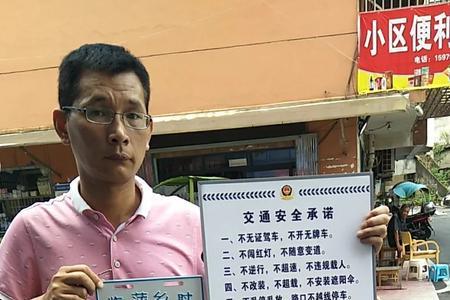 小区便利
电话：1597
交通安全承诺
一、不无证驾车，不开无牌车。
二、不闯红灯，不随意变道。
三、不逆行，不超速，不违规载人。
四、不改装，不超载，不安装遮阳伞。
路口不越线停车。